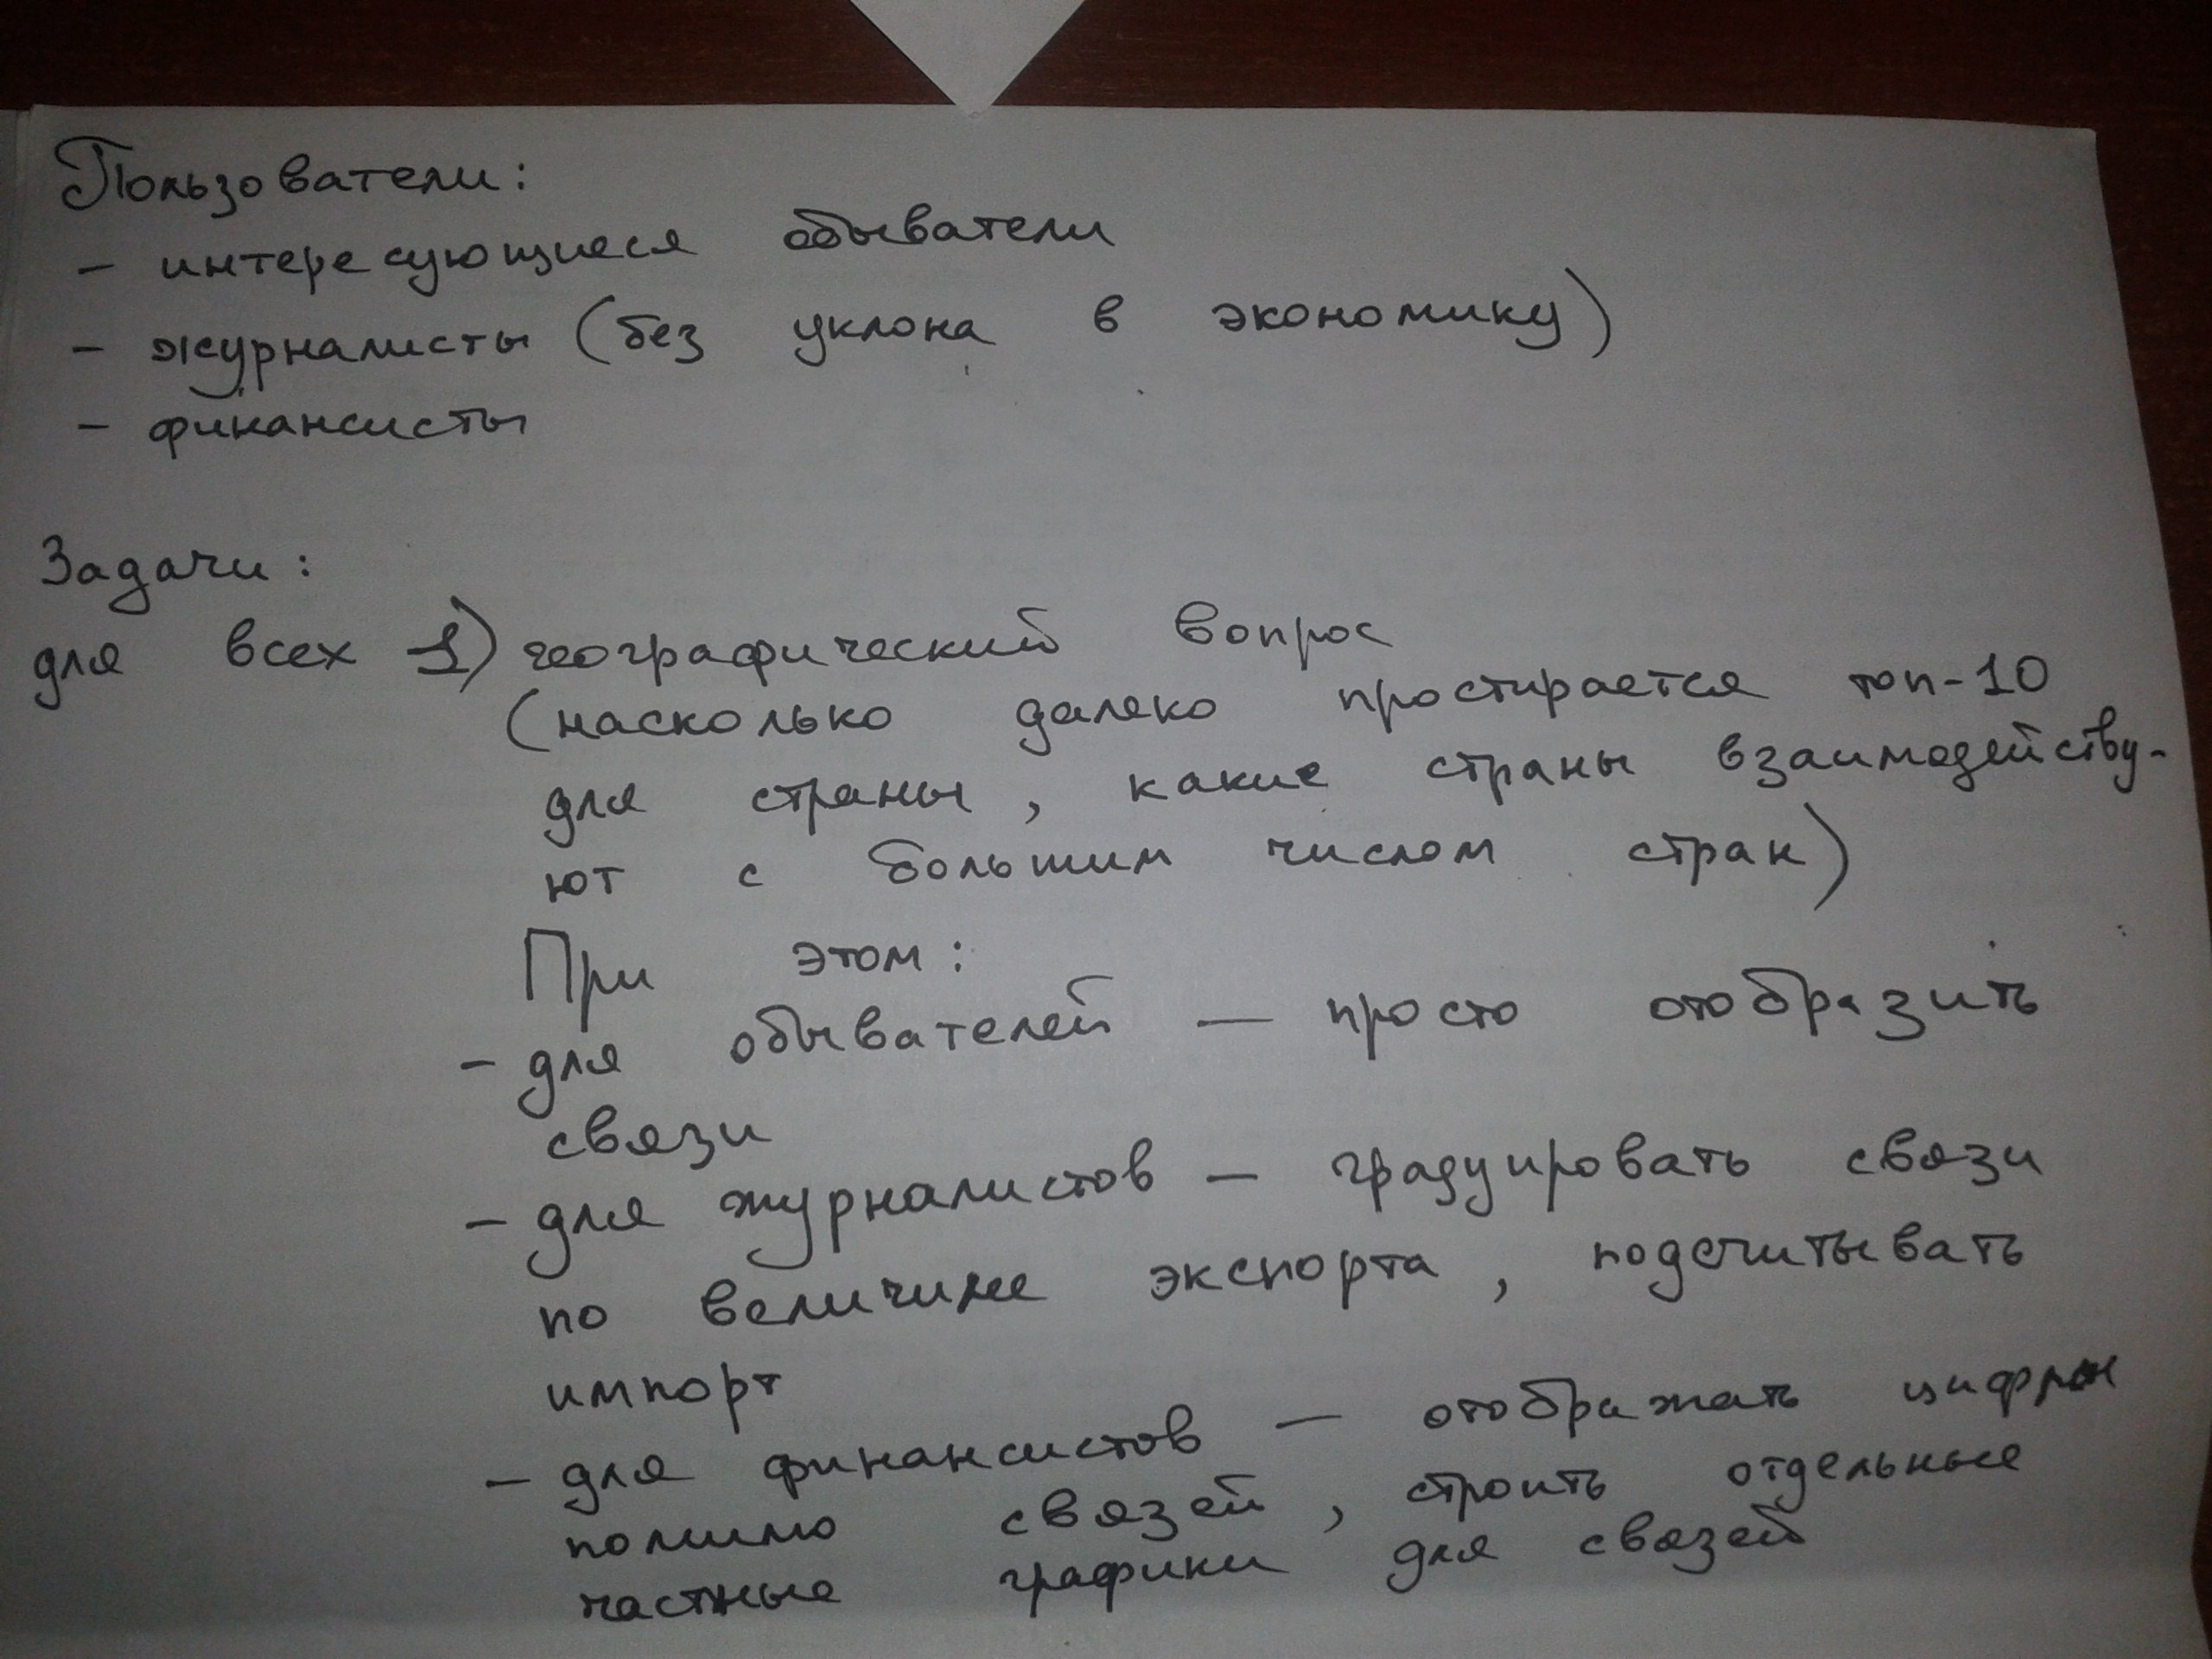 Пользователи:
- интересующиеся обыватели
- журналисты (без уклона в экономику)
- финансисты
Задачи:
для всех 1) географический вопрос
(насколько далеко простирается топ-10
для страны, какие страны взаимодейству-
ют с большим числом стран)
При этом:
- для обывателей — просто отобразить
связи
- для журналистов — градуировать связи
по величине экспорта, подсчитывать
импорт
- для финансистов — отображать цифры
помимо связей, строить отдельные
частные графики для связей